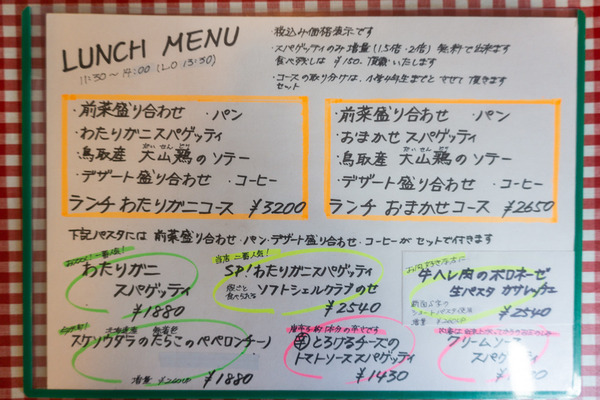 LUNCH MENU
11:30～14:00 (L.O 13:30)
・税込み価格表示です
・スパゲッティのみ増量(1.5倍・2倍) 無料で出来ます
食べ残しは ¥150. 頂戴いたします
・コースの取り分けは、小学4年生までと させて頂きます
セット
・前菜盛り合わせ ・パン
・わたりガニスパゲッティ
・鳥取産 大山鶏のソテー
・デザート盛り合わせ ・コーヒー
ランチ わたりガニコース ¥3200
・前菜盛り合わせ ・パン
・おまかせ スパゲッティ
・鳥取産 大山鶏のソテー
・デザート盛り合わせ ・コーヒー
ランチ おまかせコース ¥2650
下記パスタには 前菜盛り合わせ・パン・デザート盛り合わせ・コーヒーが セットで付きます
一番人気!
わたりガニ
スパゲッティ
¥1880
当店 二番人気!
SP!わたりガニスパゲッティ
殻ごと
食べられる
ソフトシェルクラブのせ
¥2540
牛ハレ肉のボロネーゼ
生パスタ カサレッチェ
ショートパスタ
増量
¥2540
北海道産 無着色
スケソウダラのたらこのペペロンチーノ
増量
¥1880
辛 とろけるチーズの
トマトソーススパゲッティ
¥1430
クリームソース
スパゲッティ